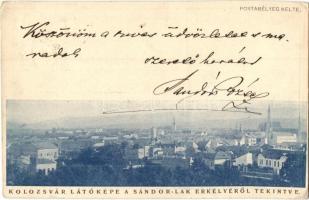 POSTABÉLYEG HELYE.
Köszönöm a szives üdvözletet s ma
radok
szerető
Sándor
KOLOZSVÁR LÁTÓKÉPE A SÁNDOR-LAK ERKÉLYÉRŐL TEKINTVE.